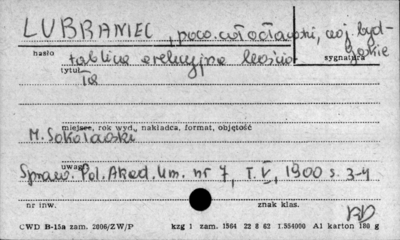 LUBRANIEC, pow. włocławski, woj. byd-
goskie
hasło
sygnatura
tablica erekcyjna kościo-
tytuł
ła
miejsce, rok wyd., nakładca, format, objętość
M. Sokołowski
uwagi
Spraw. Pol. Akad. Um. nr 7, T. V, 1900 s. 3-4
nr inw.
znak klas.
BD
CWD B-15a zam. 2006/ZW/P kzg 1 zam. 1564 22 8 62 1.554000 A1 karton 180 g